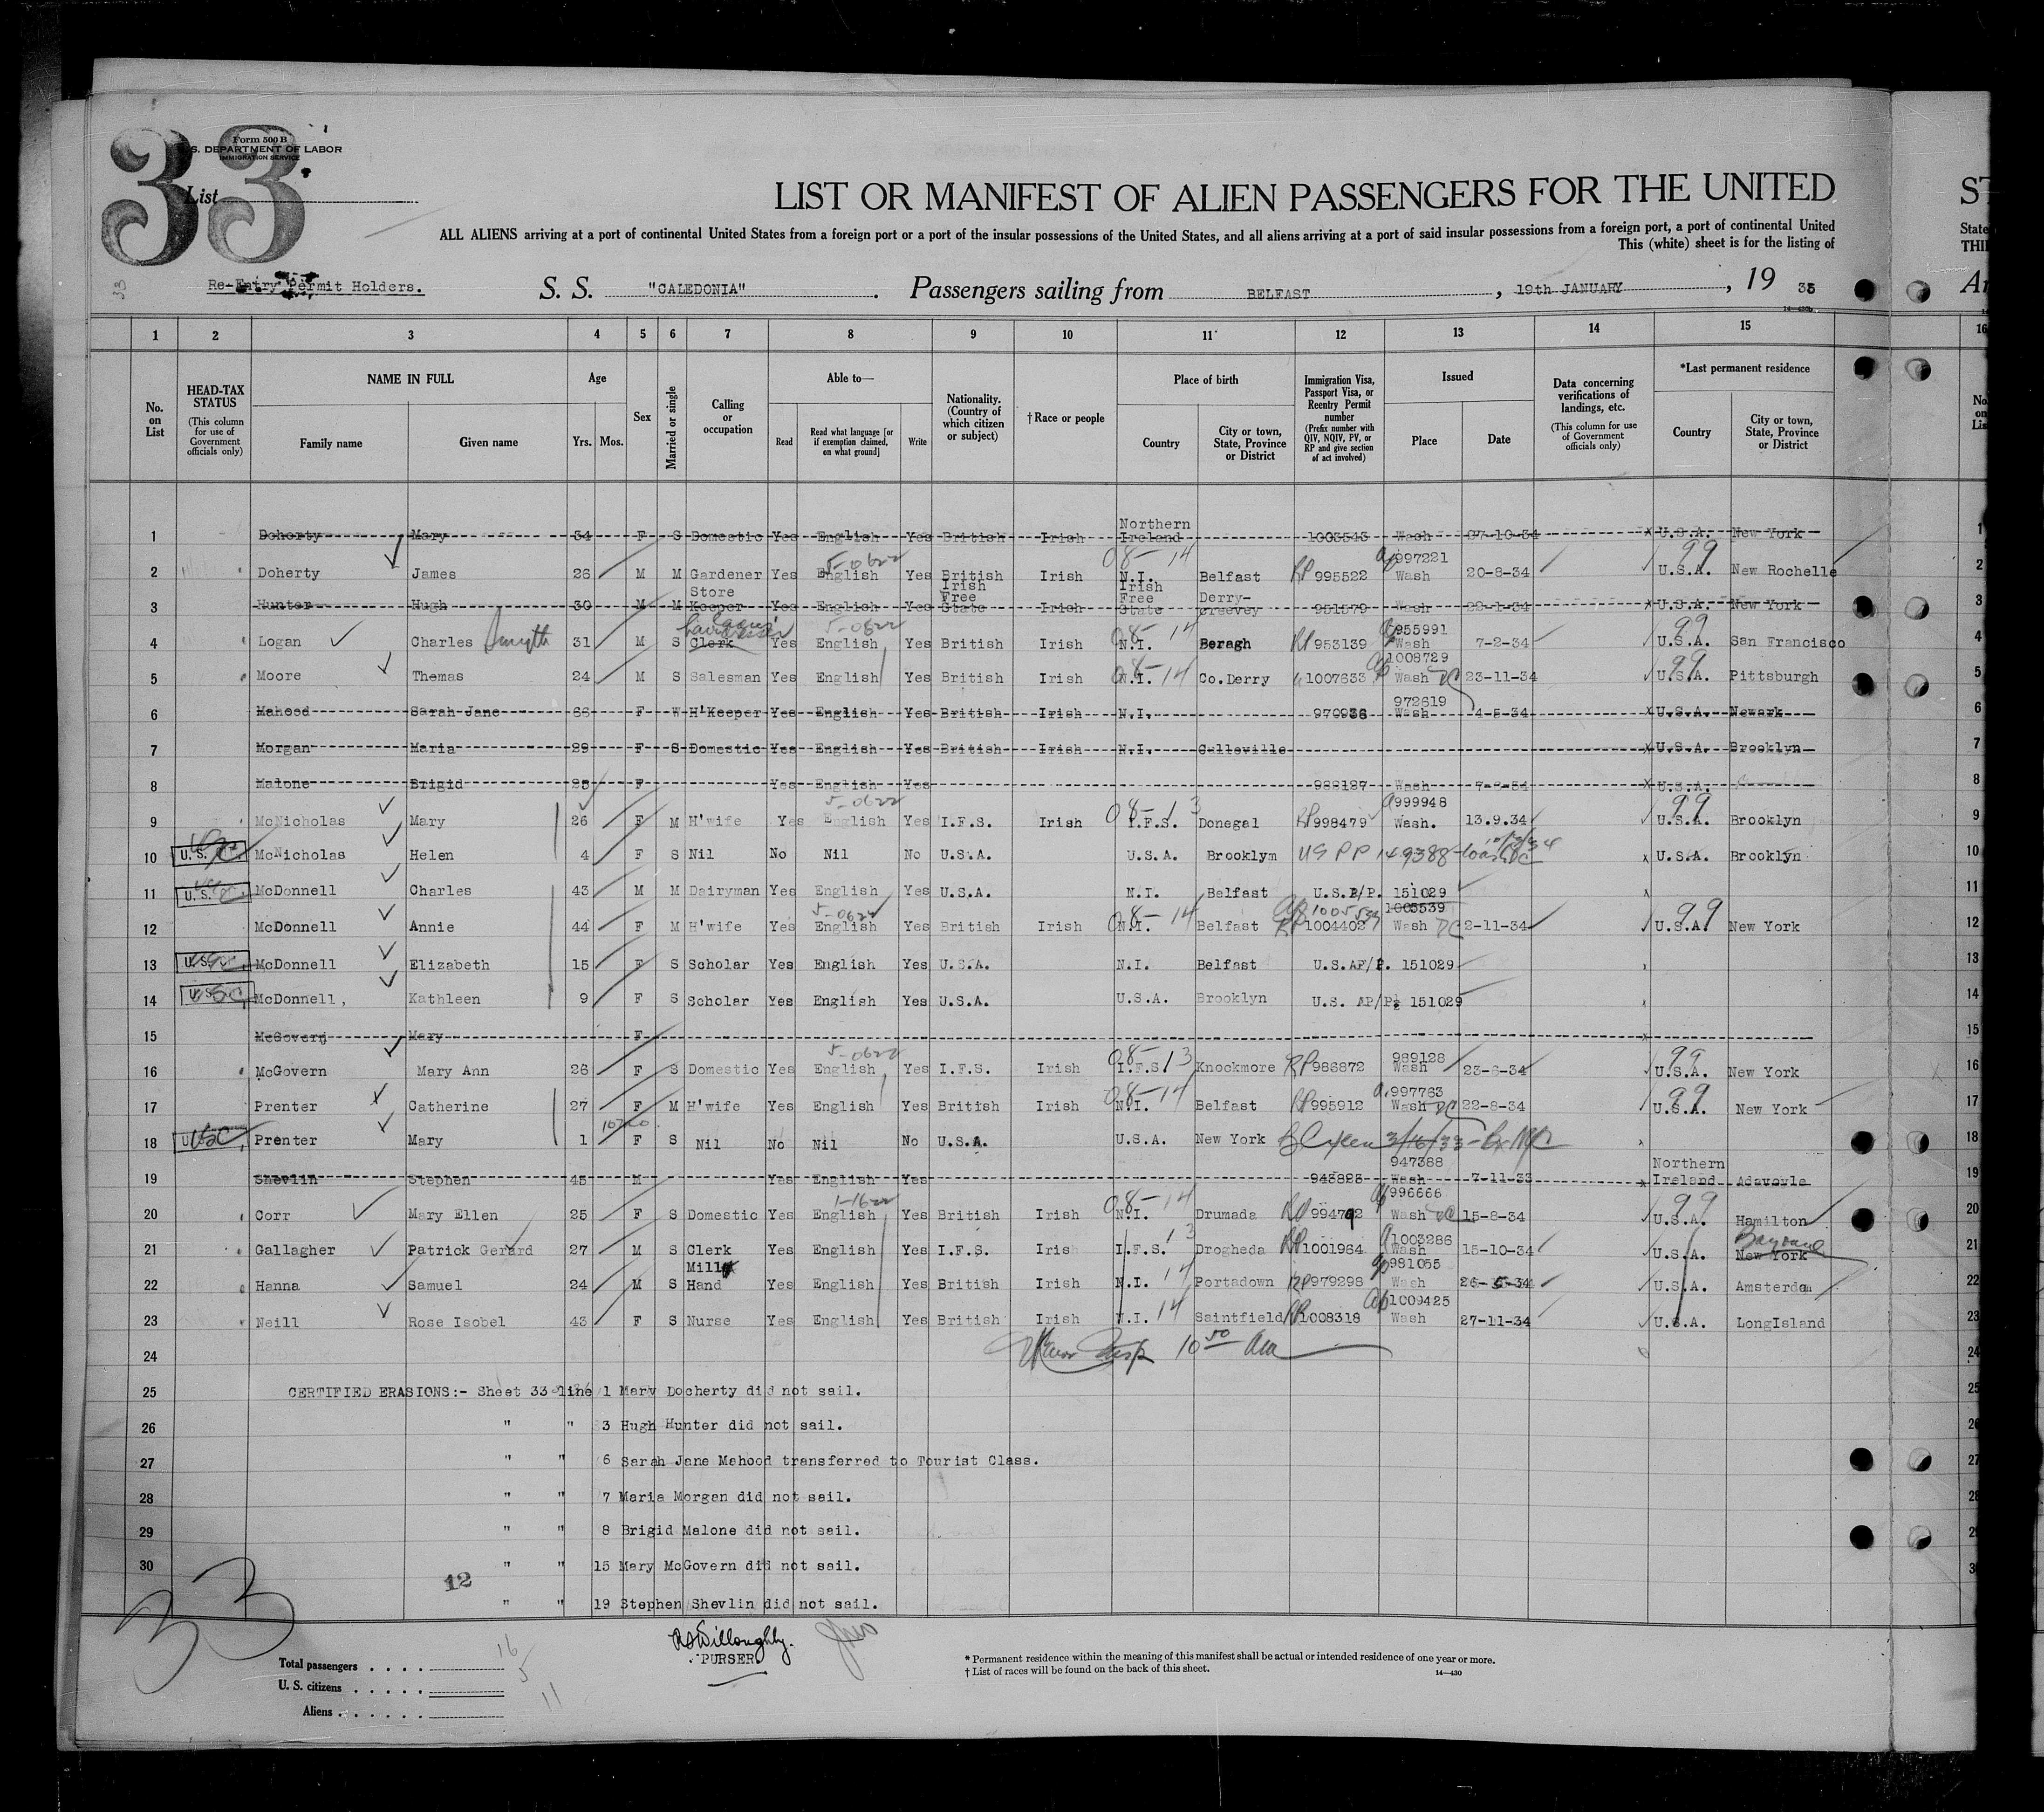 33
Form 500 B
U.S. DEPARTMENT OF LABOR
IMMIGRATION SERVICE
List
33
LIST OR MANIFEST OF ALIEN PASSENGERS FOR THE UNITED
ST
ALL ALIENS arriving at a port of continental United States from a foreign port or a port of the insular possessions of the United States, and all aliens arriving at a port of said insular possessions from a foreign port, a port of continental United
State
This (white) sheet is for the listing of
THI
Re-Entry Permit Holders. S. S. "CALEDONIA". Passengers sailing from BELFAST, 19th JANUARY, 19 35
14—430b
1 2 3 4 5 6 7 8 9 10 11 12 13 14 15 16
No. on List
HEAD-TAX STATUS (This column for use of Government officials only)
NAME IN FULL
Family name Given name
Age
Yrs. Mos.
Sex
Married or single
Calling or occupation
Able to—
Read Read what language [or if exemption claimed, on what ground] Write
Nationality. (Country of which citizen or subject)
† Race or people
Place of birth
Country City or town, State, Province or District
Immigration Visa, Passport Visa, or Reentry Permit number (Prefix number with QIV, NQIV, PV, or RP and give section of act involved)
Issued
Place Date
Data concerning verifications of landings, etc. (This column for use of Government officials only)
*Last permanent residence
Country City or town, State, Province or District
1 Doherty Mary 34 F S Domestic Yes English Yes British Irish Northern Ireland 1003543 Wash 27-10-34 x U.S.A. New York 1
5-0622 08-14 997221 99
2 Doherty James 26 M M Gardener Yes English Yes British Irish N.I. Belfast RP 995522 Wash 20-8-34 U.S.A. New Rochelle 2
3 Hunter Hugh 30 M M Store Keeper Yes English Yes Irish Free State Irish Irish Free State Derry-creevey 951579 Wash 22-1-34 x U.S.A. New York 3
5-0622 08-14 955991 99
4 Logan Charles Smyth 31 M S Clerk Yes English Yes British Irish N.I. Beragh RP 953139 Wash 7-2-34 U.S.A. San Francisco 4
08-14 1008729 99
5 Moore Thomas 24 M S Salesman Yes English Yes British Irish N.I. Co.Derry 1007633 Wash DC 23-11-34 U.S.A. Pittsburgh 5
972619
6 Mahood Sarah Jane 66 F W H'Keeper Yes English Yes British Irish N.I. 970936 Wash 4-5-34 x U.S.A. Newark 6
7 Morgan Maria 29 F S Domestic Yes English Yes British Irish N.I. Culleville x U.S.A. Brooklyn 7
8 Malone Brigid 25 F Yes English Yes 988187 Wash x U.S.A. 8
5-0622 08-13 999948 99
9 McNicholas Mary 26 F M H'wife Yes English Yes I.F.S. Irish I.F.S. Donegal RP 998479 Wash. 13.9.34 U.S.A. Brooklyn 9
10 U.S. McNicholas Helen 4 F S Nil No Nil No U.S.A. U.S.A. Brooklym US PP 149388 Wash DC x U.S.A. Brooklyn 10
11 U.S. McDonnell Charles 43 M M Dairyman Yes English Yes U.S.A. N.I. Belfast U.S.P/P. 151029 11
5-0622 08-14 1005539 1005539 99
12 McDonnell Annie 44 F M H'wife Yes English Yes British Irish N.I. Belfast RP 1004402 Wash DC 2-11-34 U.S.A. New York 12
13 U.S. McDonnell Elizabeth 15 F S Scholar Yes English Yes U.S.A. N.I. Belfast U.S.AP/P. 151029 13
14 U.S. McDonnell, Kathleen 9 F S Scholar Yes English Yes U.S.A. U.S.A. Brooklyn U.S. AP/P. 151029 14
15 McGovern Mary F x 15
5-0622 08-13 989128 99
16 McGovern Mary Ann 26 F S Domestic Yes English Yes I.F.S. Irish I.F.S. Knockmore RP 986872 Wash 23-6-34 U.S.A. New York 16
08-14 997763 99
17 Prenter Catherine 27 F M H'wife Yes English Yes British Irish N.I. Belfast RP 995912 Wash DC 22-8-34 U.S.A. New York 17
18 USC Prenter Mary 1 F S Nil No Nil No U.S.A. U.S.A. New York 3/16/33 18
947388
19 Shevlin Stephen 45 M Yes English Yes 943823 Wash 7-11-33 x Northern Ireland Adavoyle 19
1-1622 08-14 996666 99
20 Corr Mary Ellen 25 F S Domestic Yes English Yes British Irish N.I. Drumada RP 994792 Wash DC 15-8-34 U.S.A. Hamilton 20
13 1003286
21 Gallagher Patrick Gerard 27 M S Clerk Yes English Yes I.F.S. Irish I.F.S. Drogheda RP 1001964 Wash 15-10-34 U.S.A. New York 21
14 981055
22 Hanna Samuel 24 M S Mill Hand Yes English Yes British Irish N.I. Portadown RP 979298 Wash 26-5-34 U.S.A. Amsterdam 22
14 1009425
23 Neill Rose Isobel 43 F S Nurse Yes English Yes British Irish N.I. Saintfield RP 1008318 Wash 27-11-34 U.S.A. LongIsland 23
24 24
25 CERTIFIED ERASIONS:- Sheet 33 line 1 Mary Docherty did not sail. 25
26 " " 3 Hugh Hunter did not sail. 26
27 " " 6 Sarah Jane Mahood transferred to Tourist Class. 27
28 " " 7 Maria Morgan did not sail. 28
29 " " 8 Brigid Malone did not sail. 29
30 " " 15 Mary McGovern did not sail. 30
12
" " 19 Stephen Shevlin did not sail.
33
Willoughby.
PURSER.
Total passengers . . . . 16
U. S. citizens . . . . . 5
Aliens . . . . . . 11
* Permanent residence within the meaning of this manifest shall be actual or intended residence of one year or more.
† List of races will be found on the back of this sheet. 14—430